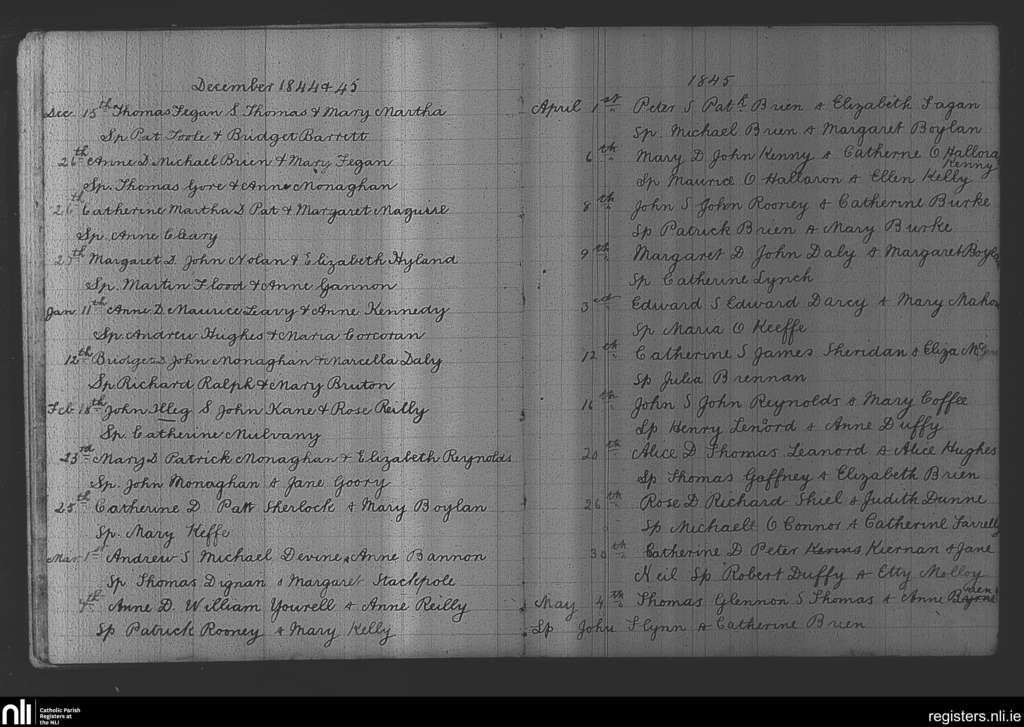 December 1844 & 45
Dec. 15th Thomas Fegan S Thomas & Mary Martha
Sp Pat Toole & Bridget Barrett
26th Anne D. Michael Brien & Mary Fegan
Sp. Thomas Gore & Anne Monaghan
26th Catherine Martha D Pat & Margaret Maguire
Sp. Anne Cleary
25th Margaret D. John Nolan & Elizabeth Hyland
Sp. Martin Flood & Anne Gannon
Jan 11th Anne D. Maurice Leary & Anne Kennedy
Sp. Andrew Hughes & Maria Corcoran
12th Bridget D John Monaghan & Marcella Daly
Sp Richard Ralph & Mary Bruton
Feb 18th John Illeg S John Kane & Rose Reilly
Sp. Catherine Mulvany
23rd Mary D Patrick Monaghan & Elizabeth Reynolds
Sp. John Monaghan & Jane Goory
25th Catherine D Patt Sherlock & Mary Boylan
Sp. Mary Keffe
Mar 1st Andrew S Michael Devine & Anne Bannon
Sp Thomas Dignan & Margaret Stackpole
7th Anne D. William Yourell & Anne Reilly
Sp Patrick Rooney & Mary Kelly
1845
April 1st Peter S Patk Brien & Elizabeth Fagan
Sp. Michael Brien & Margaret Boylan
6th Mary D John Kenny & Catherne O Hallora
Kenny
Sp Maurice O Hallaron & Ellen Kelly
8th John S John Rooney & Catherine Burke
Sp Patrick Brien & Mary Burke
9th Margaret D John Daly & Margaret Boylan
Sp Catherine Lynch
3rd Edward S Edward Darcy & Mary Mahon
Sp Maria O Keeffe
12th Catherine S James Sheridan & Eliza
Sp Julia Brennan
16th John S John Reynolds & Mary Coffee
Sp Henry Lenord & Anne Duffy
20th Alice D Thomas Leanord & Alice Hughes
Sp Thomas Gaffney & Elizabeth Brien
26th Rose D Richard Shiel & Judith Dunne
Sp Michaell O Connor & Catherine Farrelly
30th Catherine D Peter Kevins Kiernan & Jane
Neil Sp Robert Duffy & Etty Molloy
May 4th Thomas Glennon S Thomas & Anne Byrne
Sp John Flynn & Catherine Brien
nli Catholic Parish
Registers at
the NLI
registers.nli.ie